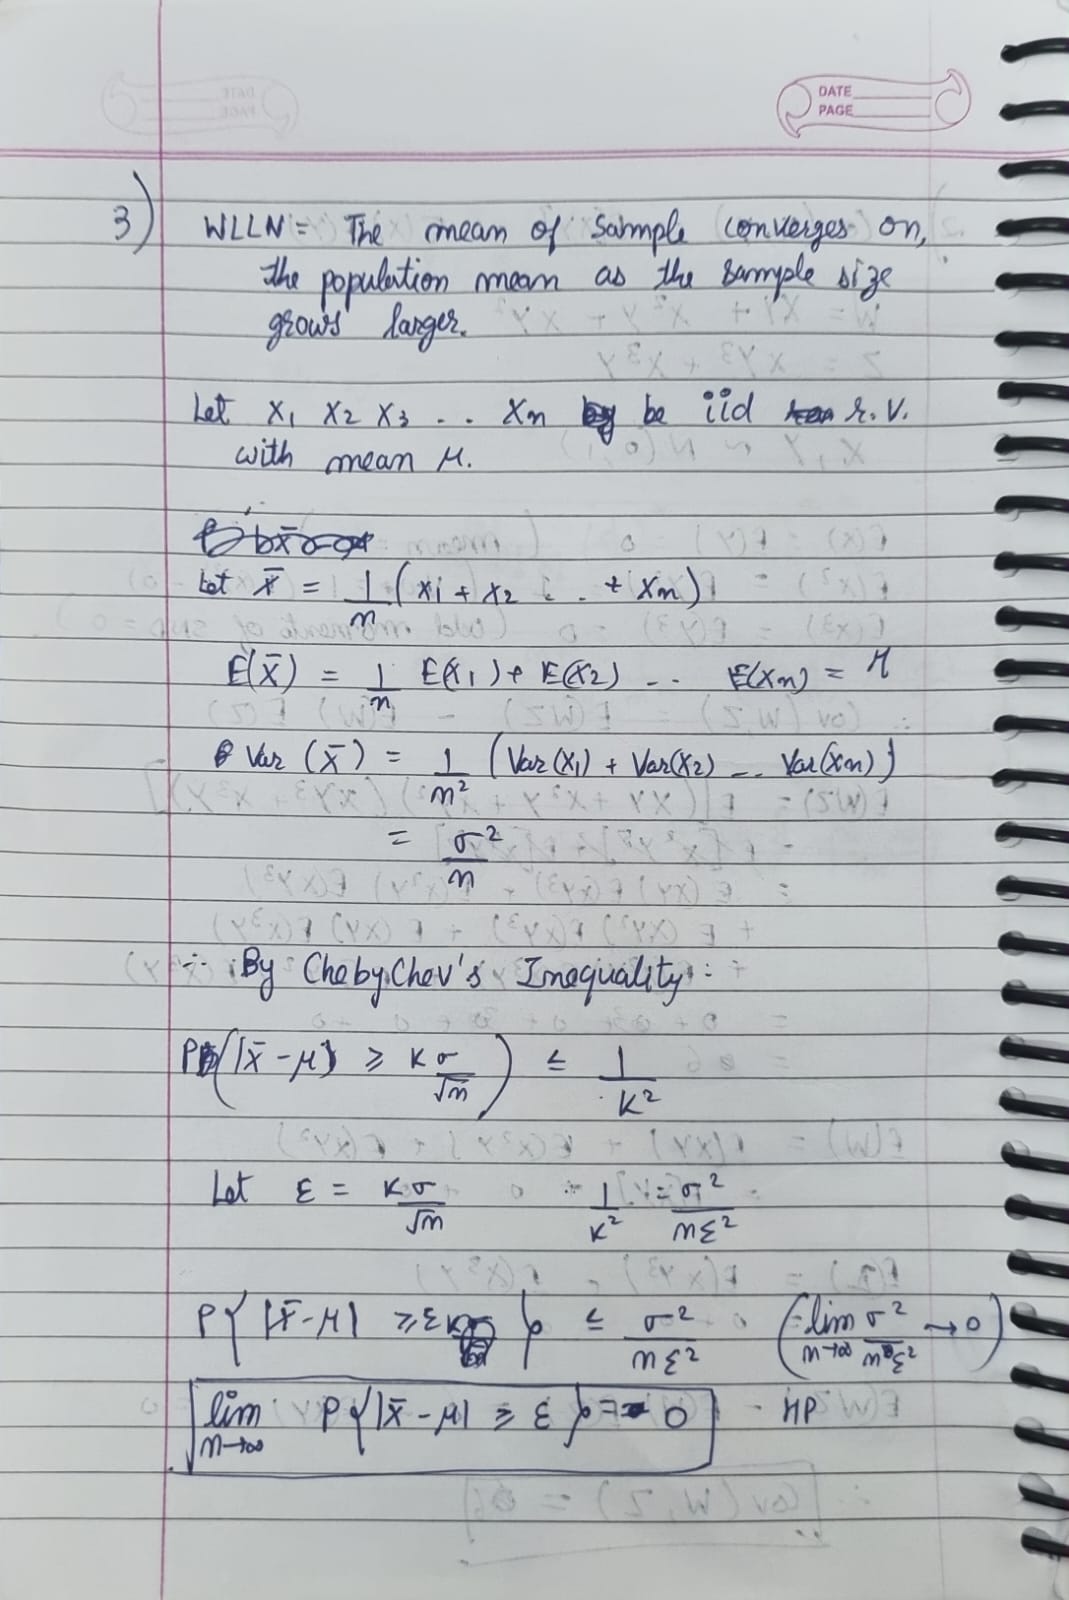 DATE
PAGE
3)
WLLN = The mean of Sample converges on,
the population mean as the sample size
grows larger.
Let X₁ X₂ X₃ .. Xn be iid r.v.
with mean μ.
Let X̄ = 1/n (x₁ + x₂ . . + Xn)
E(X̄) = 1/n E(X₁) + E(X₂) .. E(Xn) = μ
Var (X̄) = 1/n² (Var(X₁) + Var(X₂) -- Var(Xn))
= σ²/n
∴ By ChebyChev's Inequality :
P(|X̄ - μ| ≥ Kσ/√n) ≤ 1/K²
Let ε = Kσ/√n ∴ 1/K² = σ²/nε²
P{|X̄ - μ| ≥ ε} ≤ σ²/nε² (lim n→∞ σ²/nε² → 0)
lim n→∞ P{|X̄ - μ| ≥ ε} = 0 HP